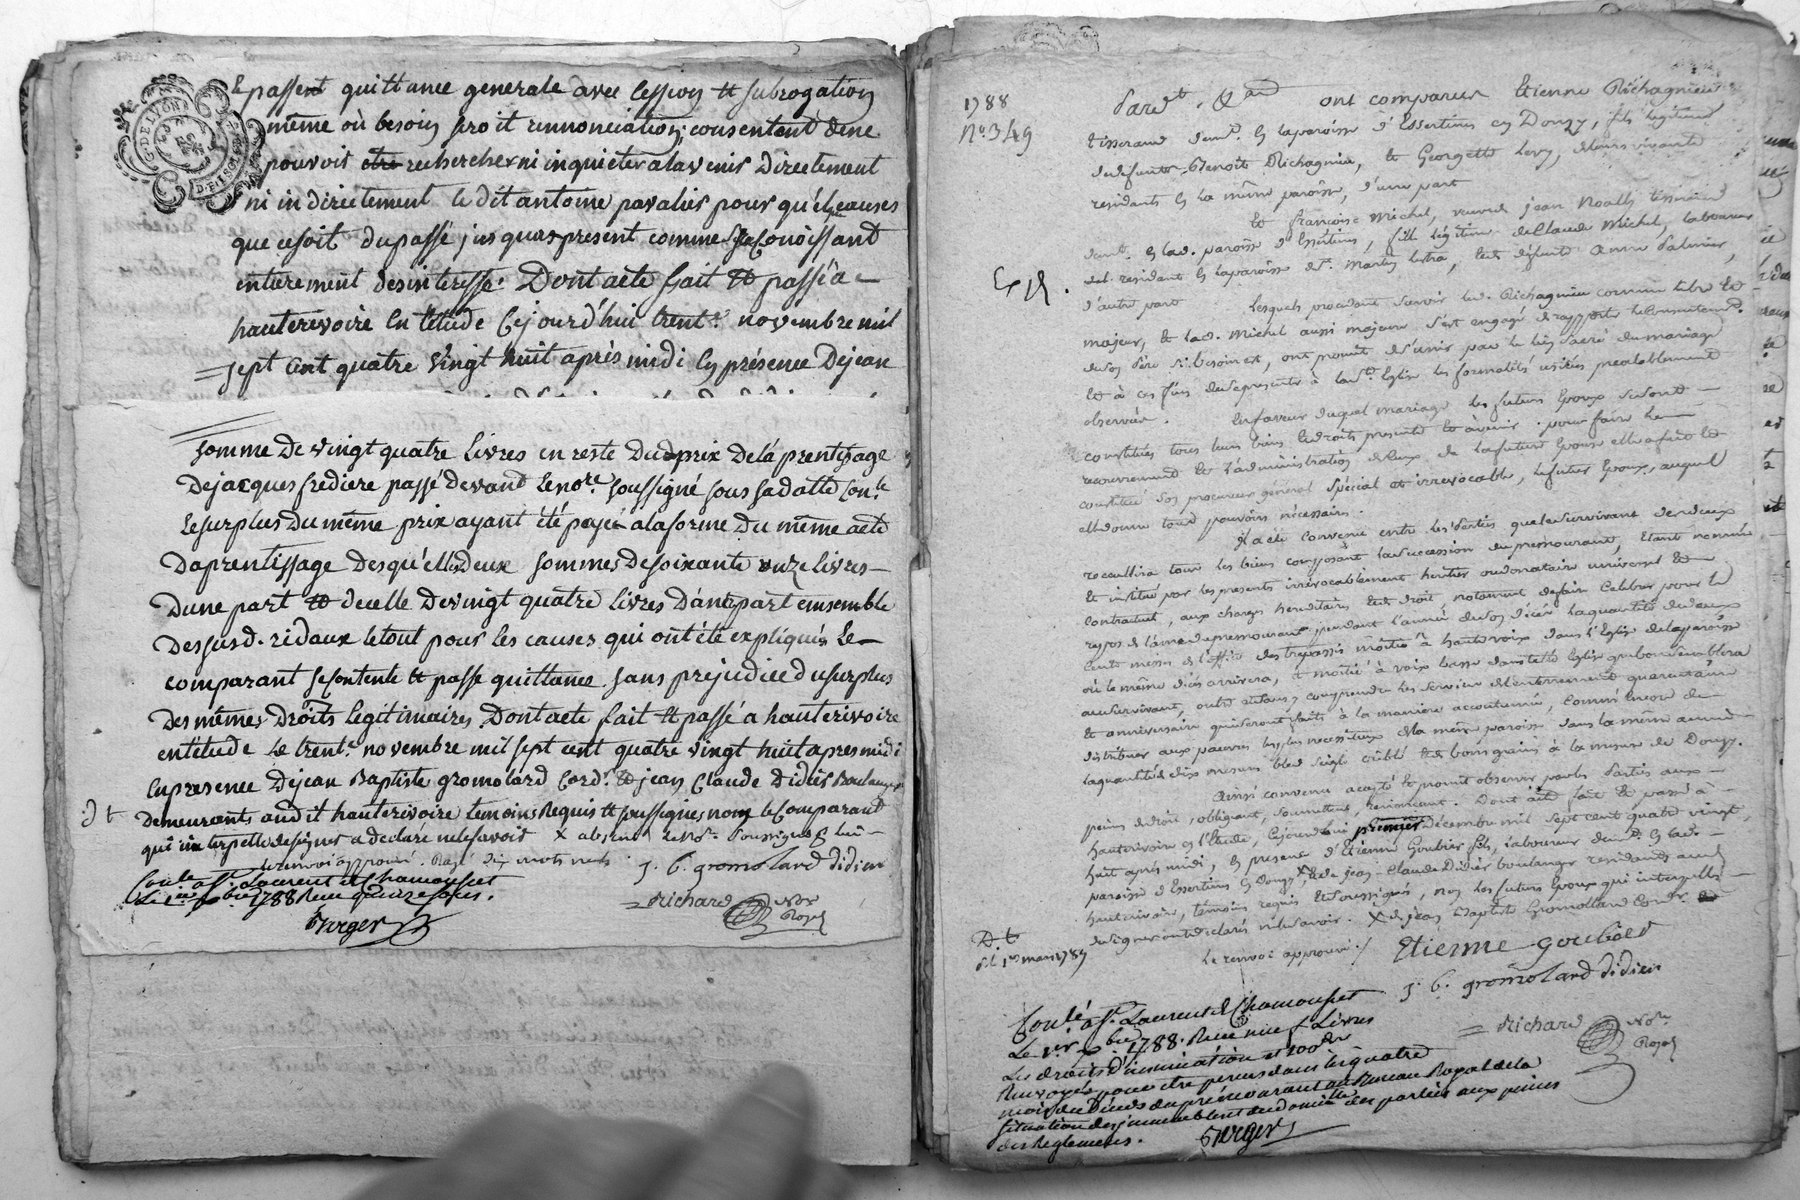 G. DE LYON
& passent quittance generale avec cession et subrogation
même où besoin seroit rennonciation, consentent de ne
pouvoir etre rechercher ni inquieter a lavenir directement
ni indirectement le dit antoine pavalier pour quelq causes
que ce soit du passé jusqua present comme se conoissant
entierement desinteressé. Dont acte fait et passé a
hauterivoire en l'étude cejourd'hui trente novembre mil
sept cent quatre vingt huit après midi en présence De jean
somme De vingt quatre Livres en reste Dudprix De la prentisage
De jacques frediere passé Devant Le nore. soussigné sous sa datte con.le
Le surplus Du même prix ayant été payé a la forme Du même acte
Daprentissage Desqu'elles Deux sommes De soixante onze Livres
Dune part et de celle De vingt quatre Livres Dantrepart ensemble
Desjusd. ridaux le tout pour les causes qui ont été expliqués Le
comparant se contente et passe quittance sans préjudice du surplus
Des mêmes Droits legitimaires Dont acte fait et passé a hauterivoire
en l'étude Le trente novembre mil sept cent quatre vingt huit apres midi
En presence De jean Baptiste gromolard cord.r et jean Claude Didier Boulanger
Demeurants audit hauterivoire temoins Requis et soussignés non le Comparant
qui interpellé de signer a declaré ne le savoir X absent le no.re soussigné
Le renvoi approuvé. Rayé dix mots nuls
j. b. gromolard didier
Con.lé a S.t Laurent de Chamousset
Le 1.er Xbre 1788 Reçu quinze sous.
Berger
Richard Nore
Royal
1788
N.o 349
Pardt. ont comparus Etienne Richagnieu
tisserand demt. en la paroisse d'Essertines en Donzy, fils legitime
de defunts Benoit Richagnieu, et Georgette Lery,
residants en la même paroisse, d'une part
Et françoise Michel, veuve jean Noally tisserand
demt. en lad. paroisse d'Essertines, fille legitime de Claude Michel, laboureur
residant en la paroisse St. Martin Letra, et de defunte anne Palmier,
d'autre part Lesquels procedant savoir led. Richagnieu comme libre et
majeur, et lad. Michel aussi majeure s'est engagé de rapporter le consentemt.
de son Pere si besoin est, ont promit de s'unir par le lien sacré du mariage
et à ces fins de se presenter à la Ste Eglise les formalités usitées prealablement
observées. En faveur duquel mariage les futurs Epoux se sont
constitués tous leurs biens et droits presents et avenir. pour faire le
recouvrement et l'administration de ceux de la future Epouse elle a fait et
constitué son procureur général spécial et irrevocable, le futur Epoux, auquel
elle donne tous pouvoirs nécessaires.
Il a été convenu entre les Parties que le survivant des deux
recueillira tous les biens composant la succession du premourant, étant nommé
et institué par les presents irrévocablement heritier ou donataire universel et
contractuel, aux charges hereditaires et de droit notament defaire celebrer pour le
repos de l'ame du premourant pendant l'année de son décès la quantité de deux
cents messes de l'office des trepassés moitié à haute voix dans l'Eglise de la paroisse
où le même décès arrivera, et moitié à voix basse dans telle Eglise que bon semblera
au survivant, outre et sans y comprendre les services d'enterrement quarantaine
et anniversaire qui seront faits à la maniere accoutumée, comme encore de
distribuer aux pauvres les plus necessiteux de la même paroisse dans la même année
la quantité de dix mesures bled seigle criblé et de bon grain à la mesure de Donzy.
Ainsi convenu accepté et promit observer par les Parties aux
peines de droit, obligeant, soumettant, renonceant. Dont acte fait et passé à
hauterivoire en l'étude, Cejourd'hui premier décembre mil sept cent quatre vingt
huit après midi, en presence d'Etienne Goubier fils, laboureur demt. en lad.
paroisse d'Essertines en Donzy, X et de jean Claude Didier boulanger residant aud.
hauterivoire, temoins requis et soussignés, non les futurs Epoux qui interpellés
de signer ont declarés ne le savoir. X de jean Baptiste Gromollard cord.r
Le renvoi approuvé
Etienne goubier
D.t
du 1er mars 1789
j. b. gromoland didier
Con.lé a S.t Laurent de Chamousset
Le 1.er Xbre 1788. Reçu Livres
Les droits d'insinuation et 100.e dr
Renvoyés pour être perçus dans les quatre
mois du Décès du prémourant au Bureau Royal de la
situation des immeubles et du domicille des parties aux peines
des Reglements.
Berger
Richard Nore
Royal